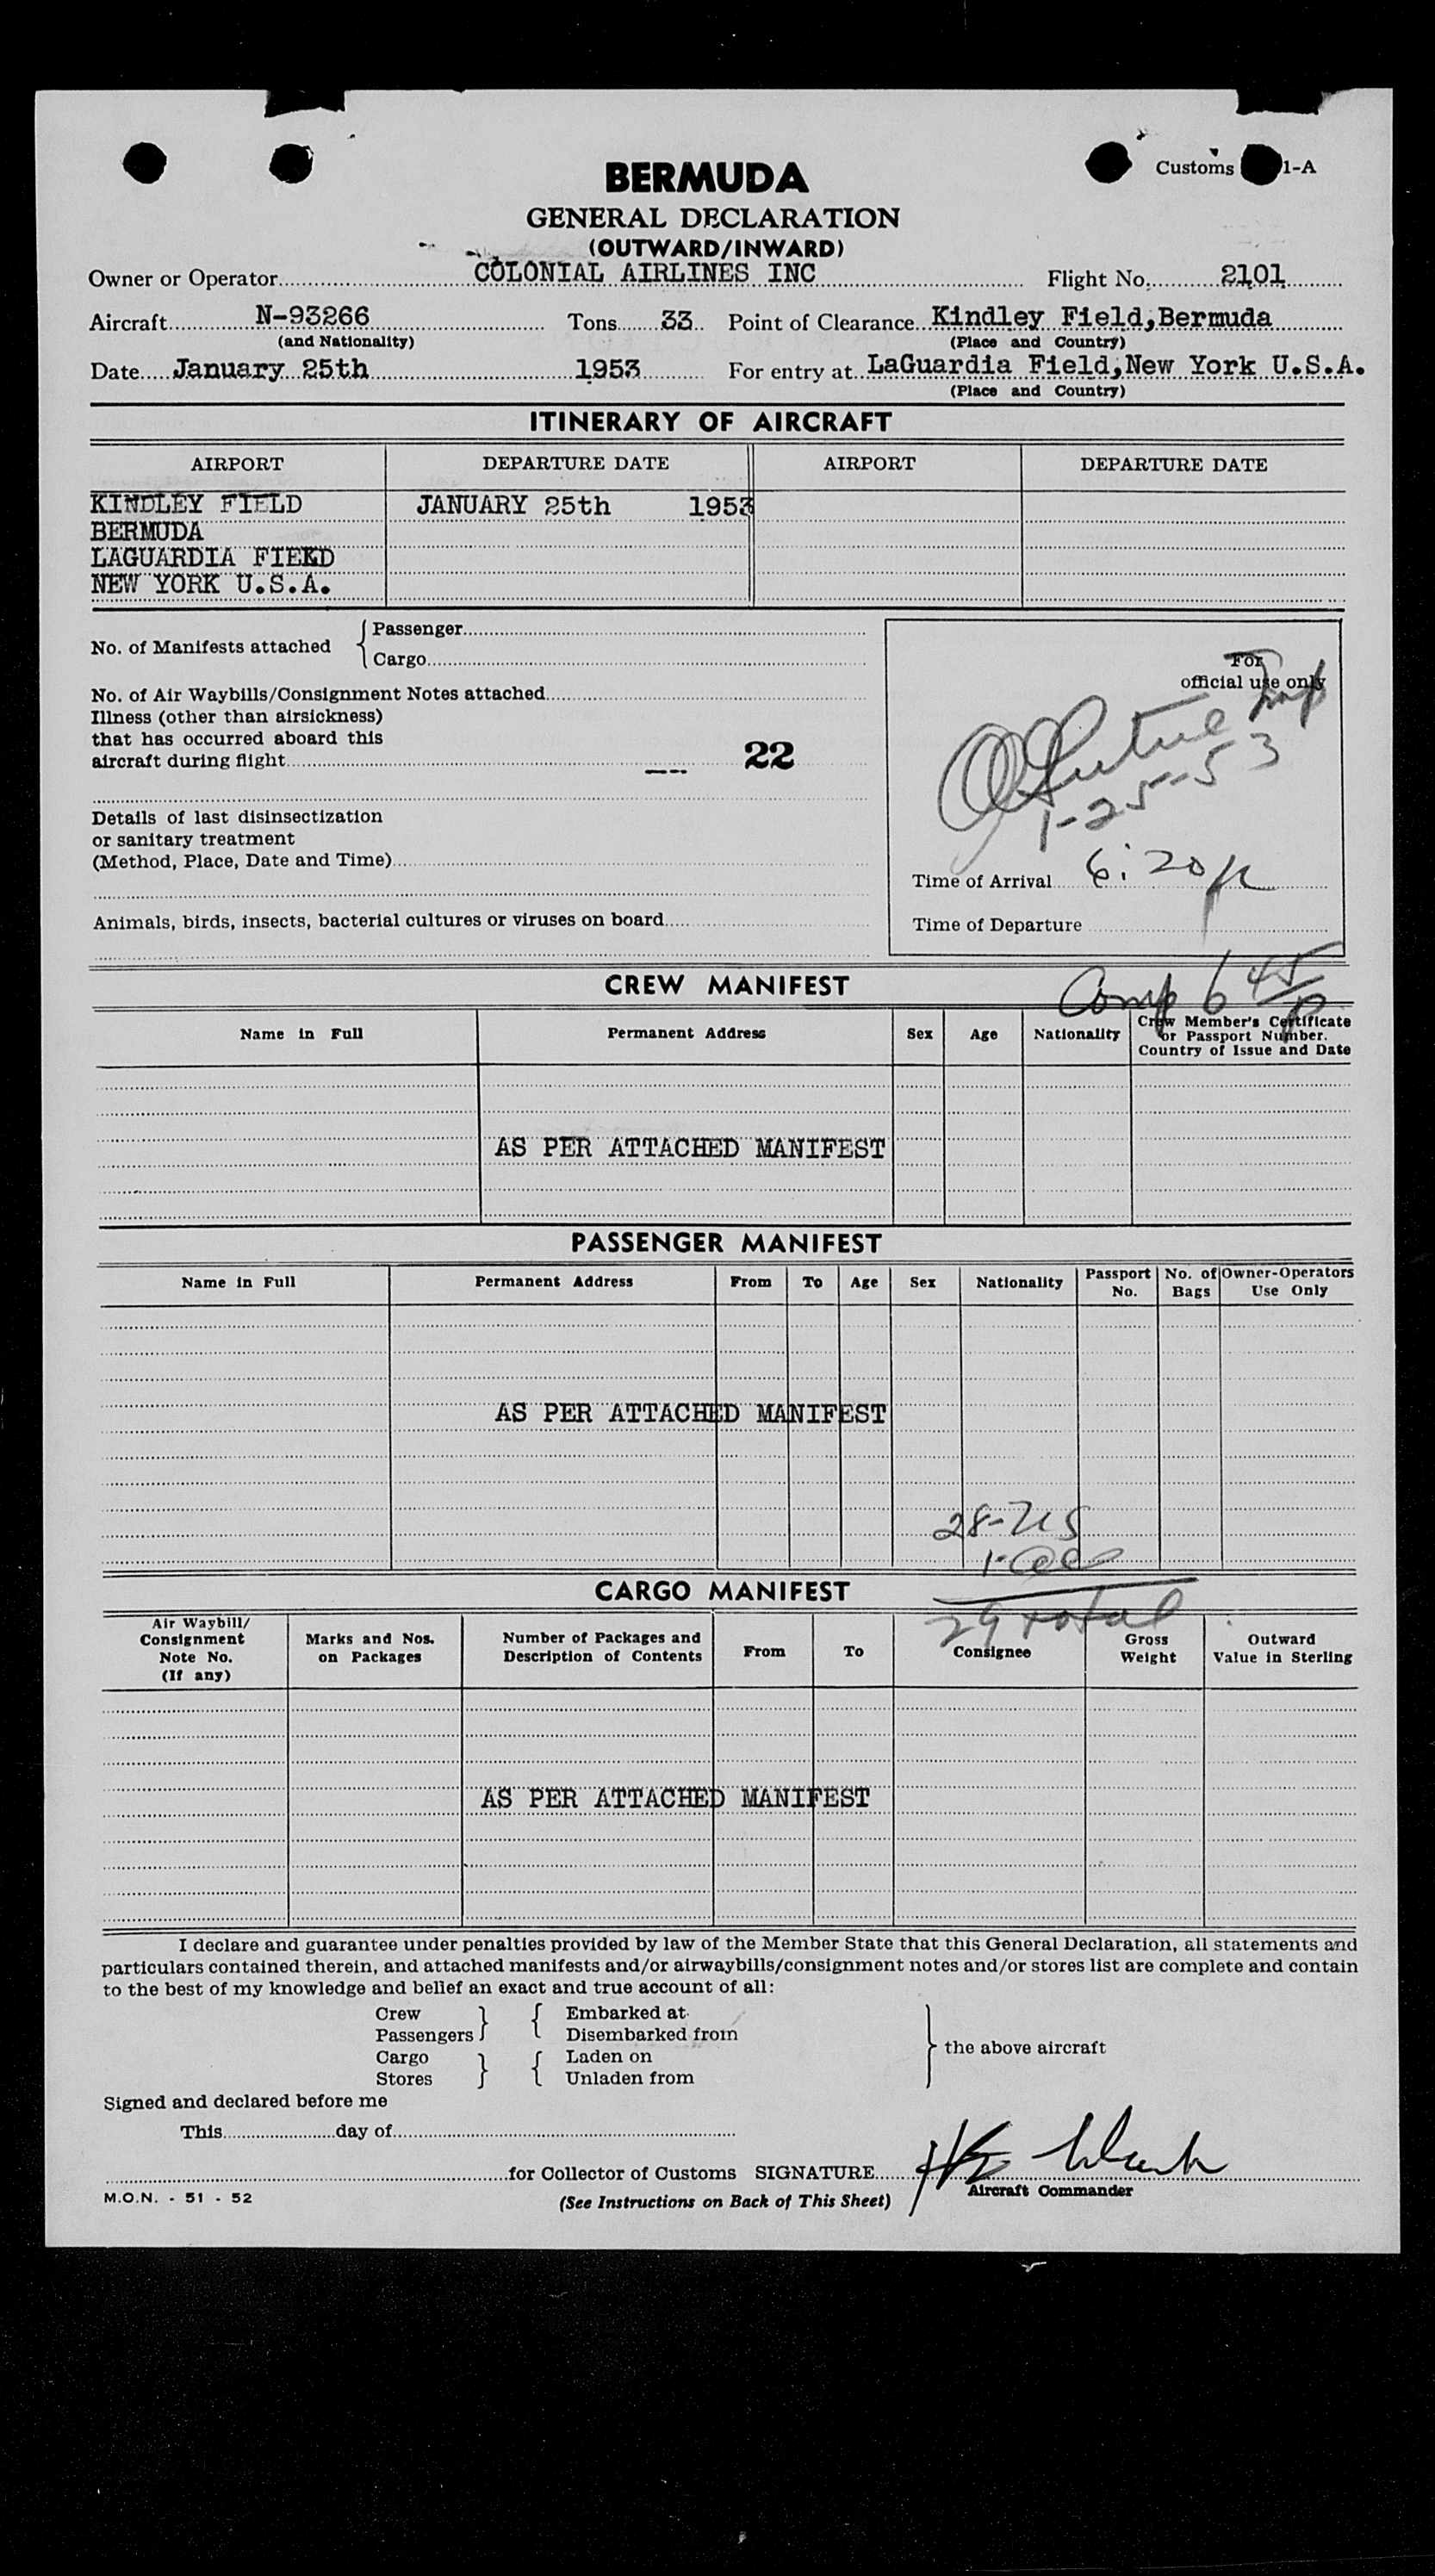 Customs 1-A
BERMUDA
GENERAL DECLARATION
(OUTWARD/INWARD)
Owner or Operator COLONIAL AIRLINES INC Flight No. 2101
Aircraft N-93266 Tons 33 Point of Clearance Kindley Field, Bermuda
(and Nationality) (Place and Country)
Date January 25th 1953 For entry at LaGuardia Field, New York U.S.A.
(Place and Country)
ITINERARY OF AIRCRAFT
AIRPORT DEPARTURE DATE AIRPORT DEPARTURE DATE
KINDLEY FIELD JANUARY 25th 1953
BERMUDA
LAGUARDIA FIEKD
NEW YORK U.S.A.
No. of Manifests attached { Passenger
Cargo
No. of Air Waybills/Consignment Notes attached
Illness (other than airsickness)
that has occurred aboard this
aircraft during flight -- 22
Details of last disinsectization
or sanitary treatment
(Method, Place, Date and Time)
Animals, birds, insects, bacterial cultures or viruses on board
For
official use only
1-25-53
Time of Arrival 6:20p
Time of Departure
Comp 6 45/p
CREW MANIFEST
Name in Full Permanent Address Sex Age Nationality Crew Member's Certificate
or Passport Number.
Country of Issue and Date
AS PER ATTACHED MANIFEST
PASSENGER MANIFEST
Name in Full Permanent Address From To Age Sex Nationality Passport No. No. of Bags Owner-Operators Use Only
AS PER ATTACHED MANIFEST
28-US
29 total
CARGO MANIFEST
Air Waybill/ Consignment Note No. (If any) Marks and Nos. on Packages Number of Packages and Description of Contents From To Consignee Gross Weight Outward Value in Sterling
AS PER ATTACHED MANIFEST
I declare and guarantee under penalties provided by law of the Member State that this General Declaration, all statements and
particulars contained therein, and attached manifests and/or airwaybills/consignment notes and/or stores list are complete and contain
to the best of my knowledge and belief an exact and true account of all:
Crew } { Embarked at
Passengers Disembarked from
Cargo } { Laden on } the above aircraft
Stores Unladen from
Signed and declared before me
This day of
for Collector of Customs SIGNATURE
Aircraft Commander
M.O.N. - 51 - 52 (See Instructions on Back of This Sheet)